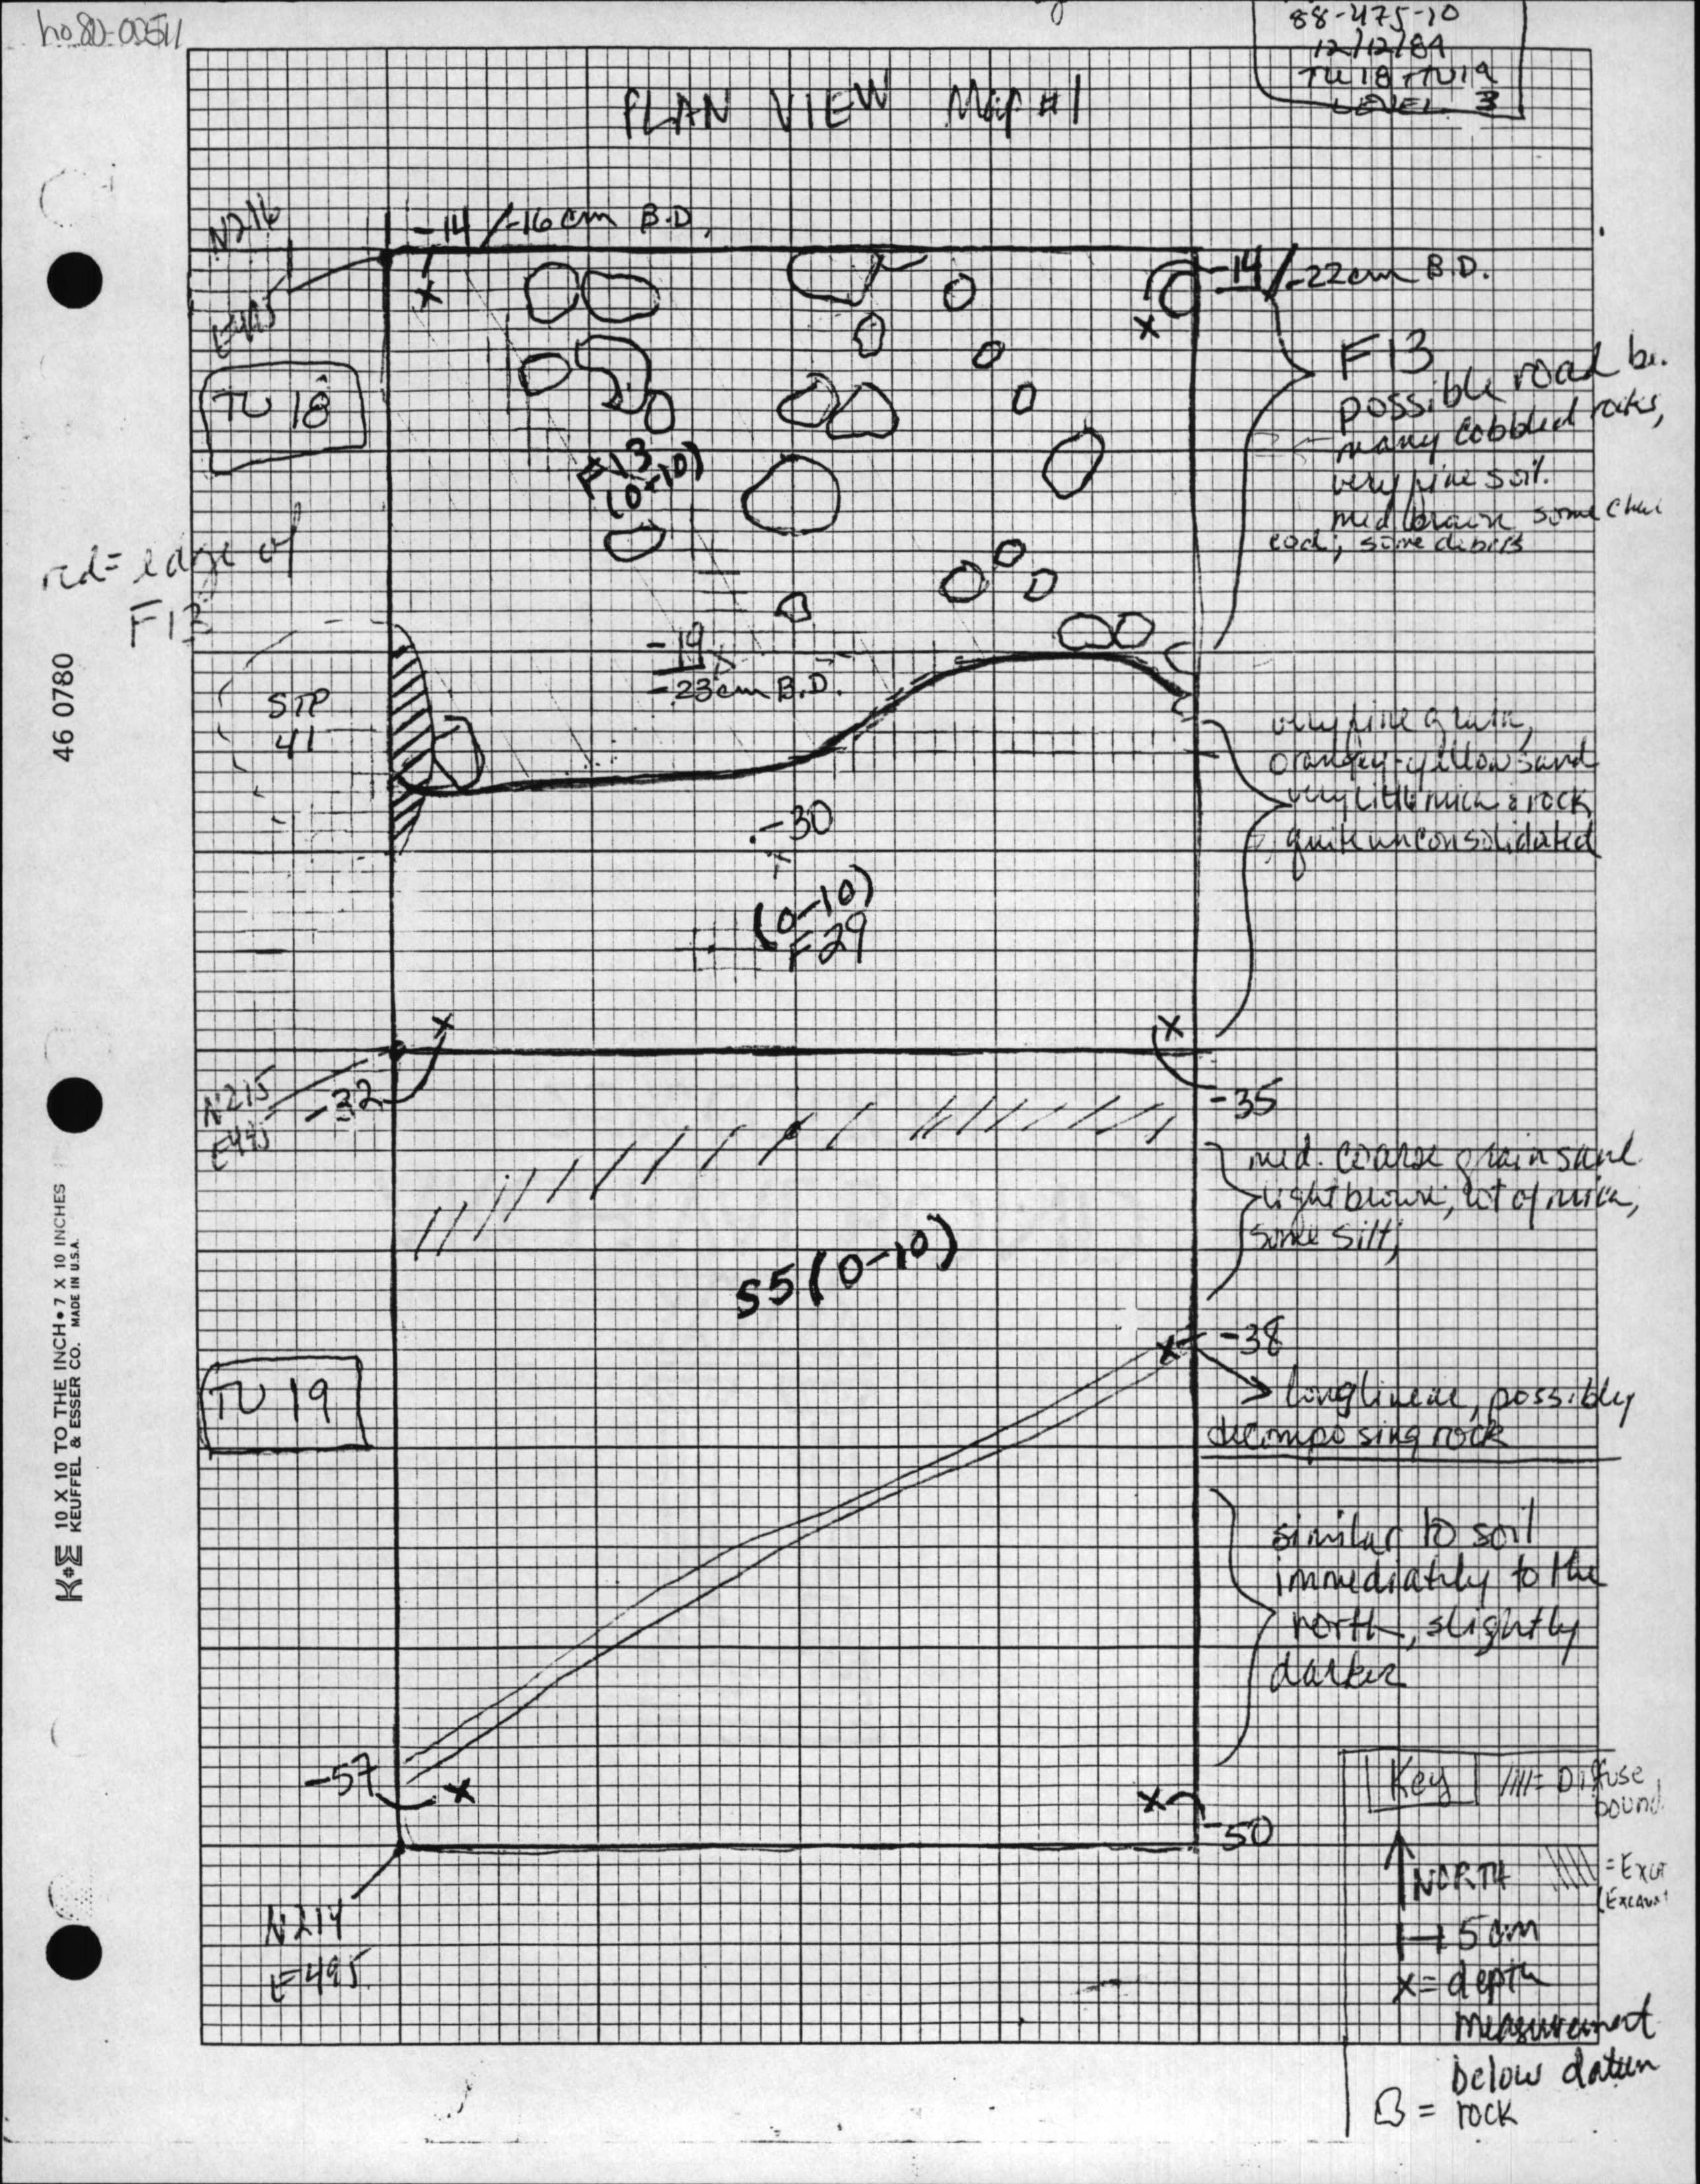 88-475-10
12/12/89
TU 18 + TU19
LEVEL 3
PLAN VIEW Map #1
N216
-14/-16cm B.D.
-14/-22cm B.D.
TU 18
F13
possible road be.
many cobbled rocks,
very fine soil.
med brown some
some debris
F13
(0-10)
red = edge of
F13
STP
41
-19
-23cm B.D.
very fine grain,
orangey-yellow sand
very little mica & rock
quite unconsolidated
-30
(0-10)
F29
N215
E495
-32
-35
med. coarse grain sand
light brown; lot of mica,
some silt;
S5 (0-10)
-38
long linear, possibly
decomposing rock
TU 19
similar to soil
immediately to the
north, slightly
darker
-57
-50
N214
E495
Key
//// = Diffuse
bound.
NORTH
5cm
x = depth
measurement
below datum
= rock
46 0780
K+E 10 X 10 TO THE INCH • 7 X 10 INCHES
KEUFFEL & ESSER CO. MADE IN U.S.A.